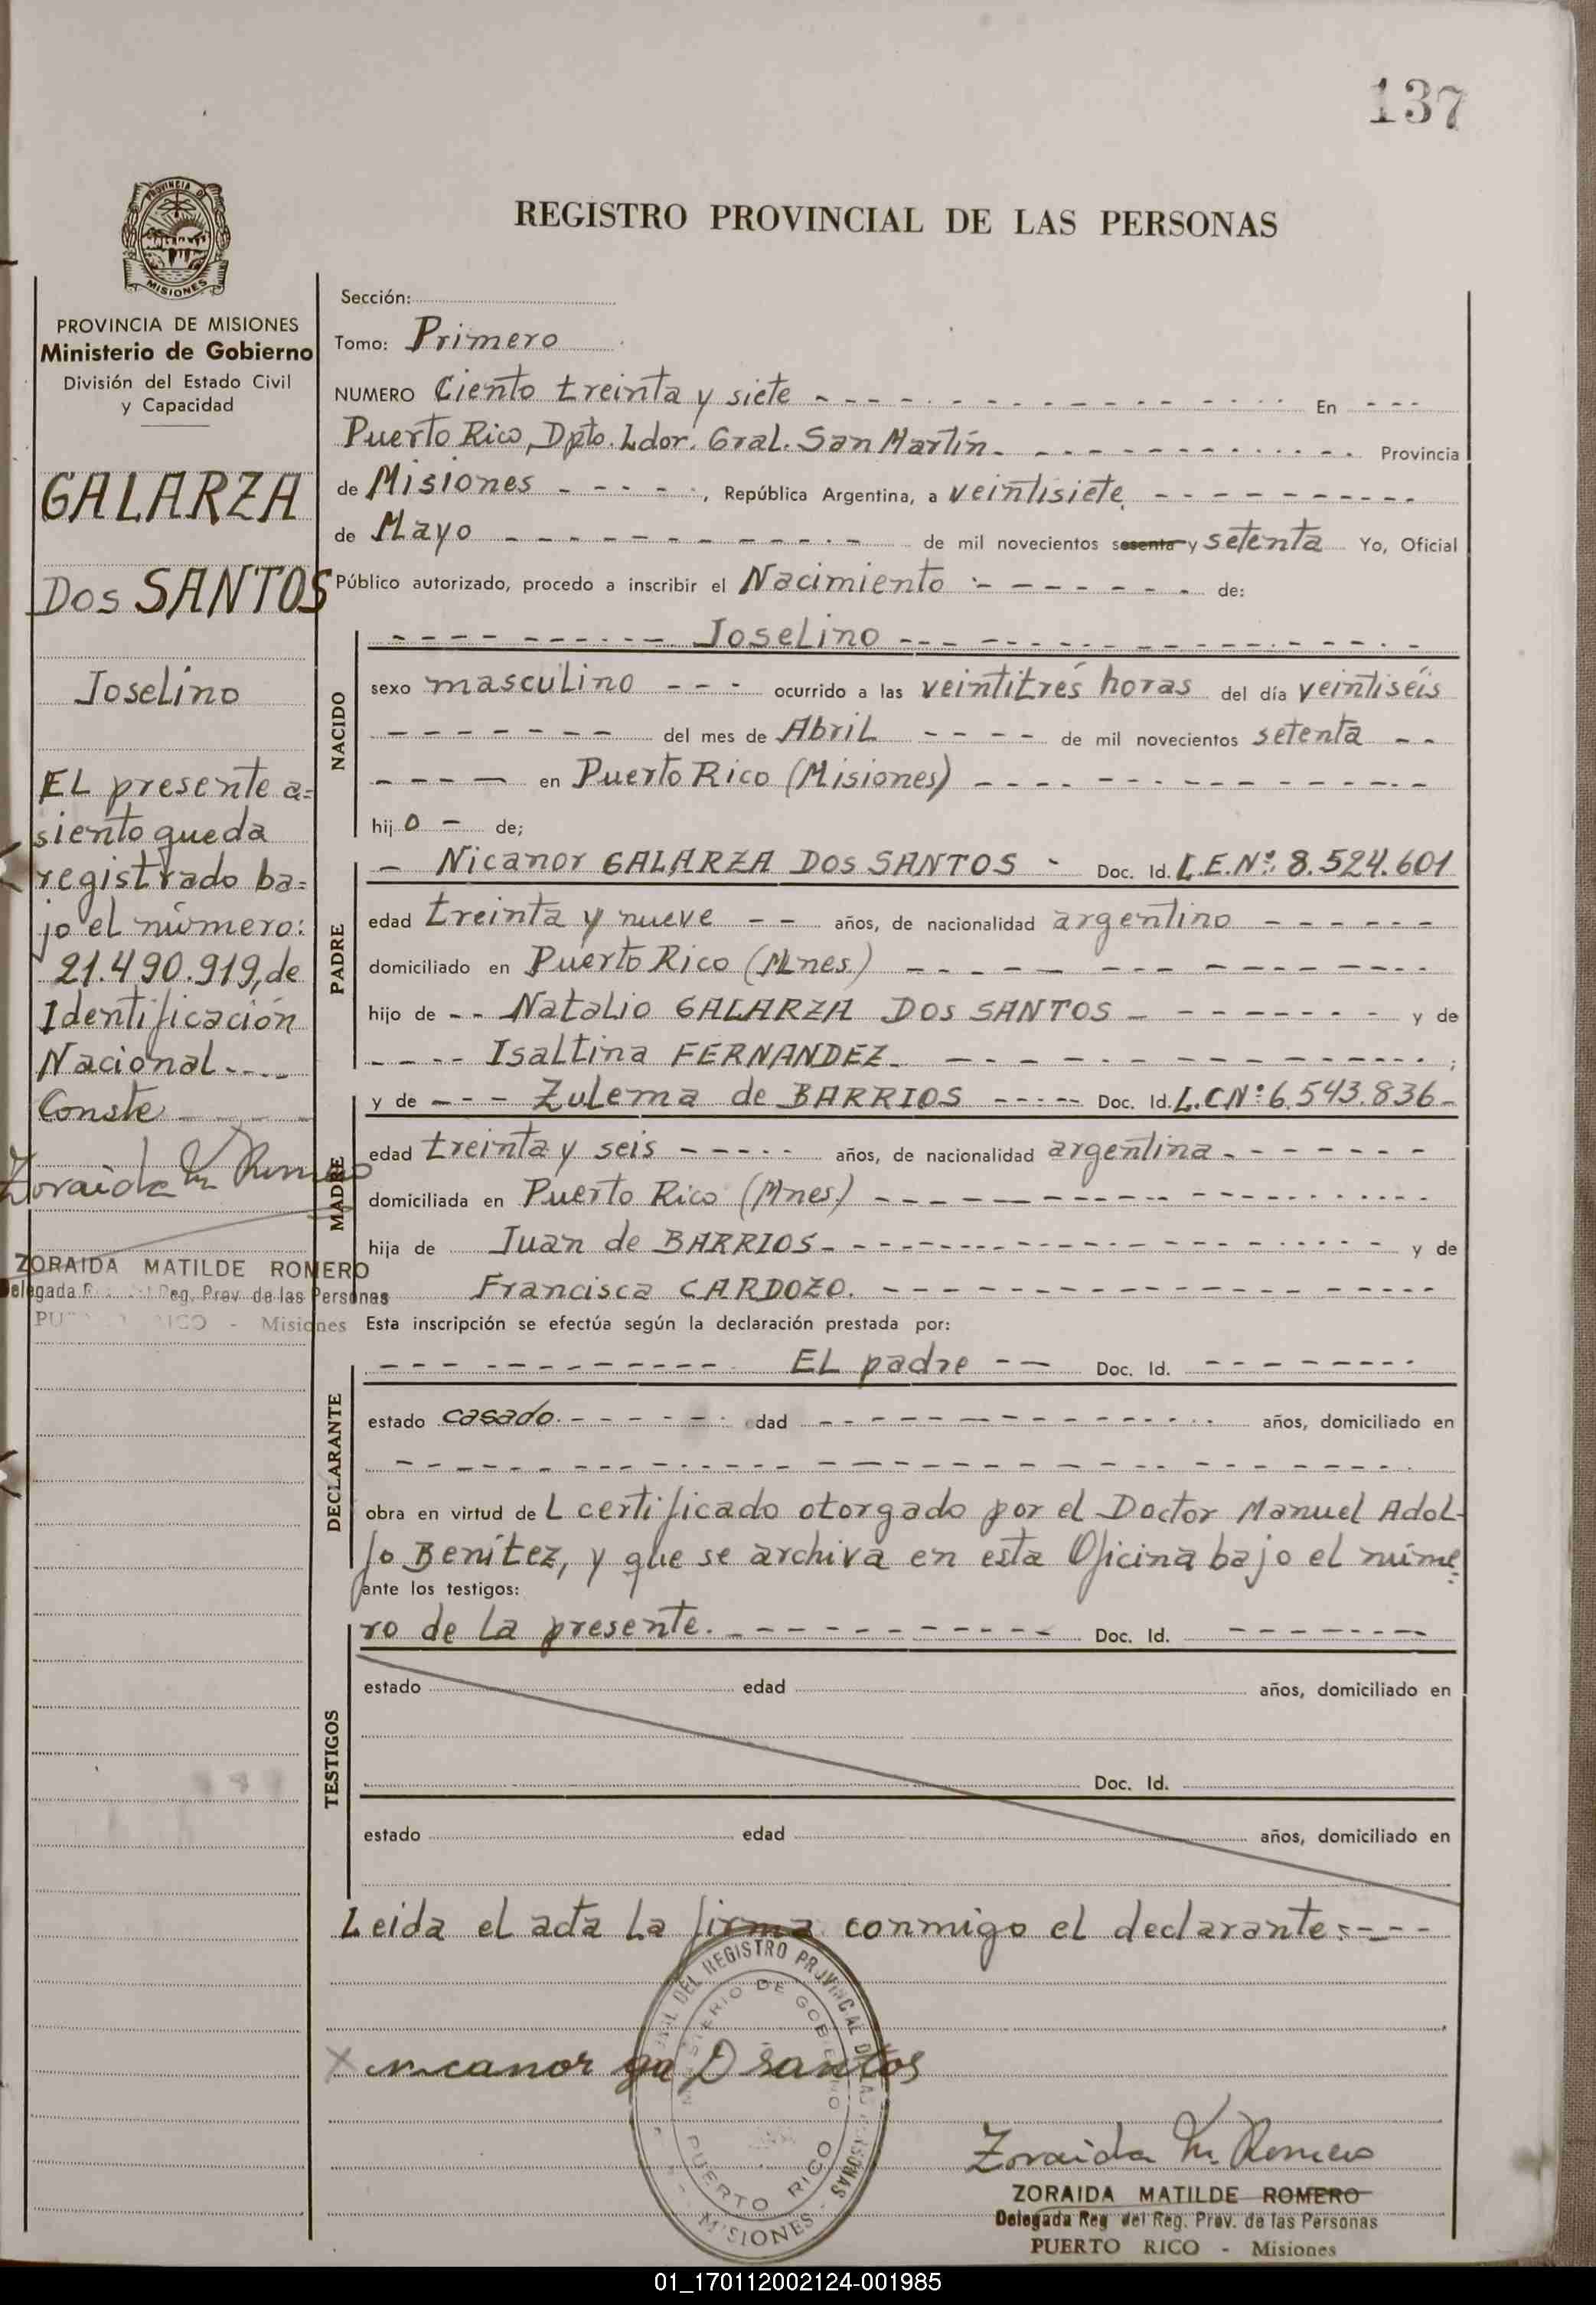 137
PROVINCIA DE
MISIONES
REGISTRO PROVINCIAL DE LAS PERSONAS
PROVINCIA DE MISIONES
Ministerio de Gobierno
División del Estado Civil
y Capacidad
GALARZA
Dos SANTOS
Joselino
EL presente a=
siento queda
registrado ba=
jo el número:
21.490.919, de
Identificación
Nacional.---
Conste
Zoraida M. Romero
ZORAIDA MATILDE ROMERO
Delegada Reg. Prov. de las Personas
PUERTO RICO - Misiones
Sección:
Tomo: Primero
NUMERO Ciento treinta y siete - - - En - - -
Puerto Rico, Dpto. Ldor. Gral. San Martín. - - - Provincia
de Misiones - - - -, República Argentina, a veintisiete. - - -
de Mayo - - - de mil novecientos sesenta y setenta Yo, Oficial
Público autorizado, procedo a inscribir el Nacimiento - - - de:
- - - Joselino - - -
NACIDO
sexo masculino - - - ocurrido a las veintitrés horas del día veintiséis
- - - del mes de Abril - - - - de mil novecientos setenta - -
- - - en Puerto Rico (Misiones) - - -
hijo - de;
PADRE
- Nicanor GALARZA DOS SANTOS - Doc. Id. L.E.Nº: 8.524.601
edad treinta y nueve - - años, de nacionalidad argentino - - -
domiciliado en Puerto Rico (Mnes.) - - -
hijo de - - Natalio GALARZA DOS SANTOS - - - y de
- - - - Isaltina FERNANDEZ. - - - ;
MADRE
y de - - - Zulema de BARRIOS - - - Doc. Id. L.C.Nº: 6.543.836-
edad treinta y seis - - - años, de nacionalidad argentina - - -
domiciliada en Puerto Rico (Mnes.) - - -
hija de Juan de BARRIOS - - - y de
Francisca CARDOZO. - - -
Esta inscripción se efectúa según la declaración prestada por:
DECLARANTE
- - - EL padre - - Doc. Id. - - -
estado casado. - - - edad - - - años, domiciliado en
- - -
obra en virtud de L certificado otorgado por el Doctor Manuel Adol-
fo Benítez, y que se archiva en esta Oficina bajo el núme=
ante los testigos:
TESTIGOS
ro de la presente. - - - Doc. Id. - - -
estado edad años, domiciliado en
Doc. Id.
estado edad años, domiciliado en
Leida el acta la firma conmigo el declarante: - - -
DEL REGISTRO PROVINCIAL DE LAS PERSONAS
MINISTERIO DE GOBIERNO
PUERTO RICO
- MISIONES -
X nicanor ga D santos
Zoraida M. Romero
ZORAIDA MATILDE ROMERO
Delegada Reg del Reg. Prov. de las Personas
PUERTO RICO - Misiones
01_170112002124-001985